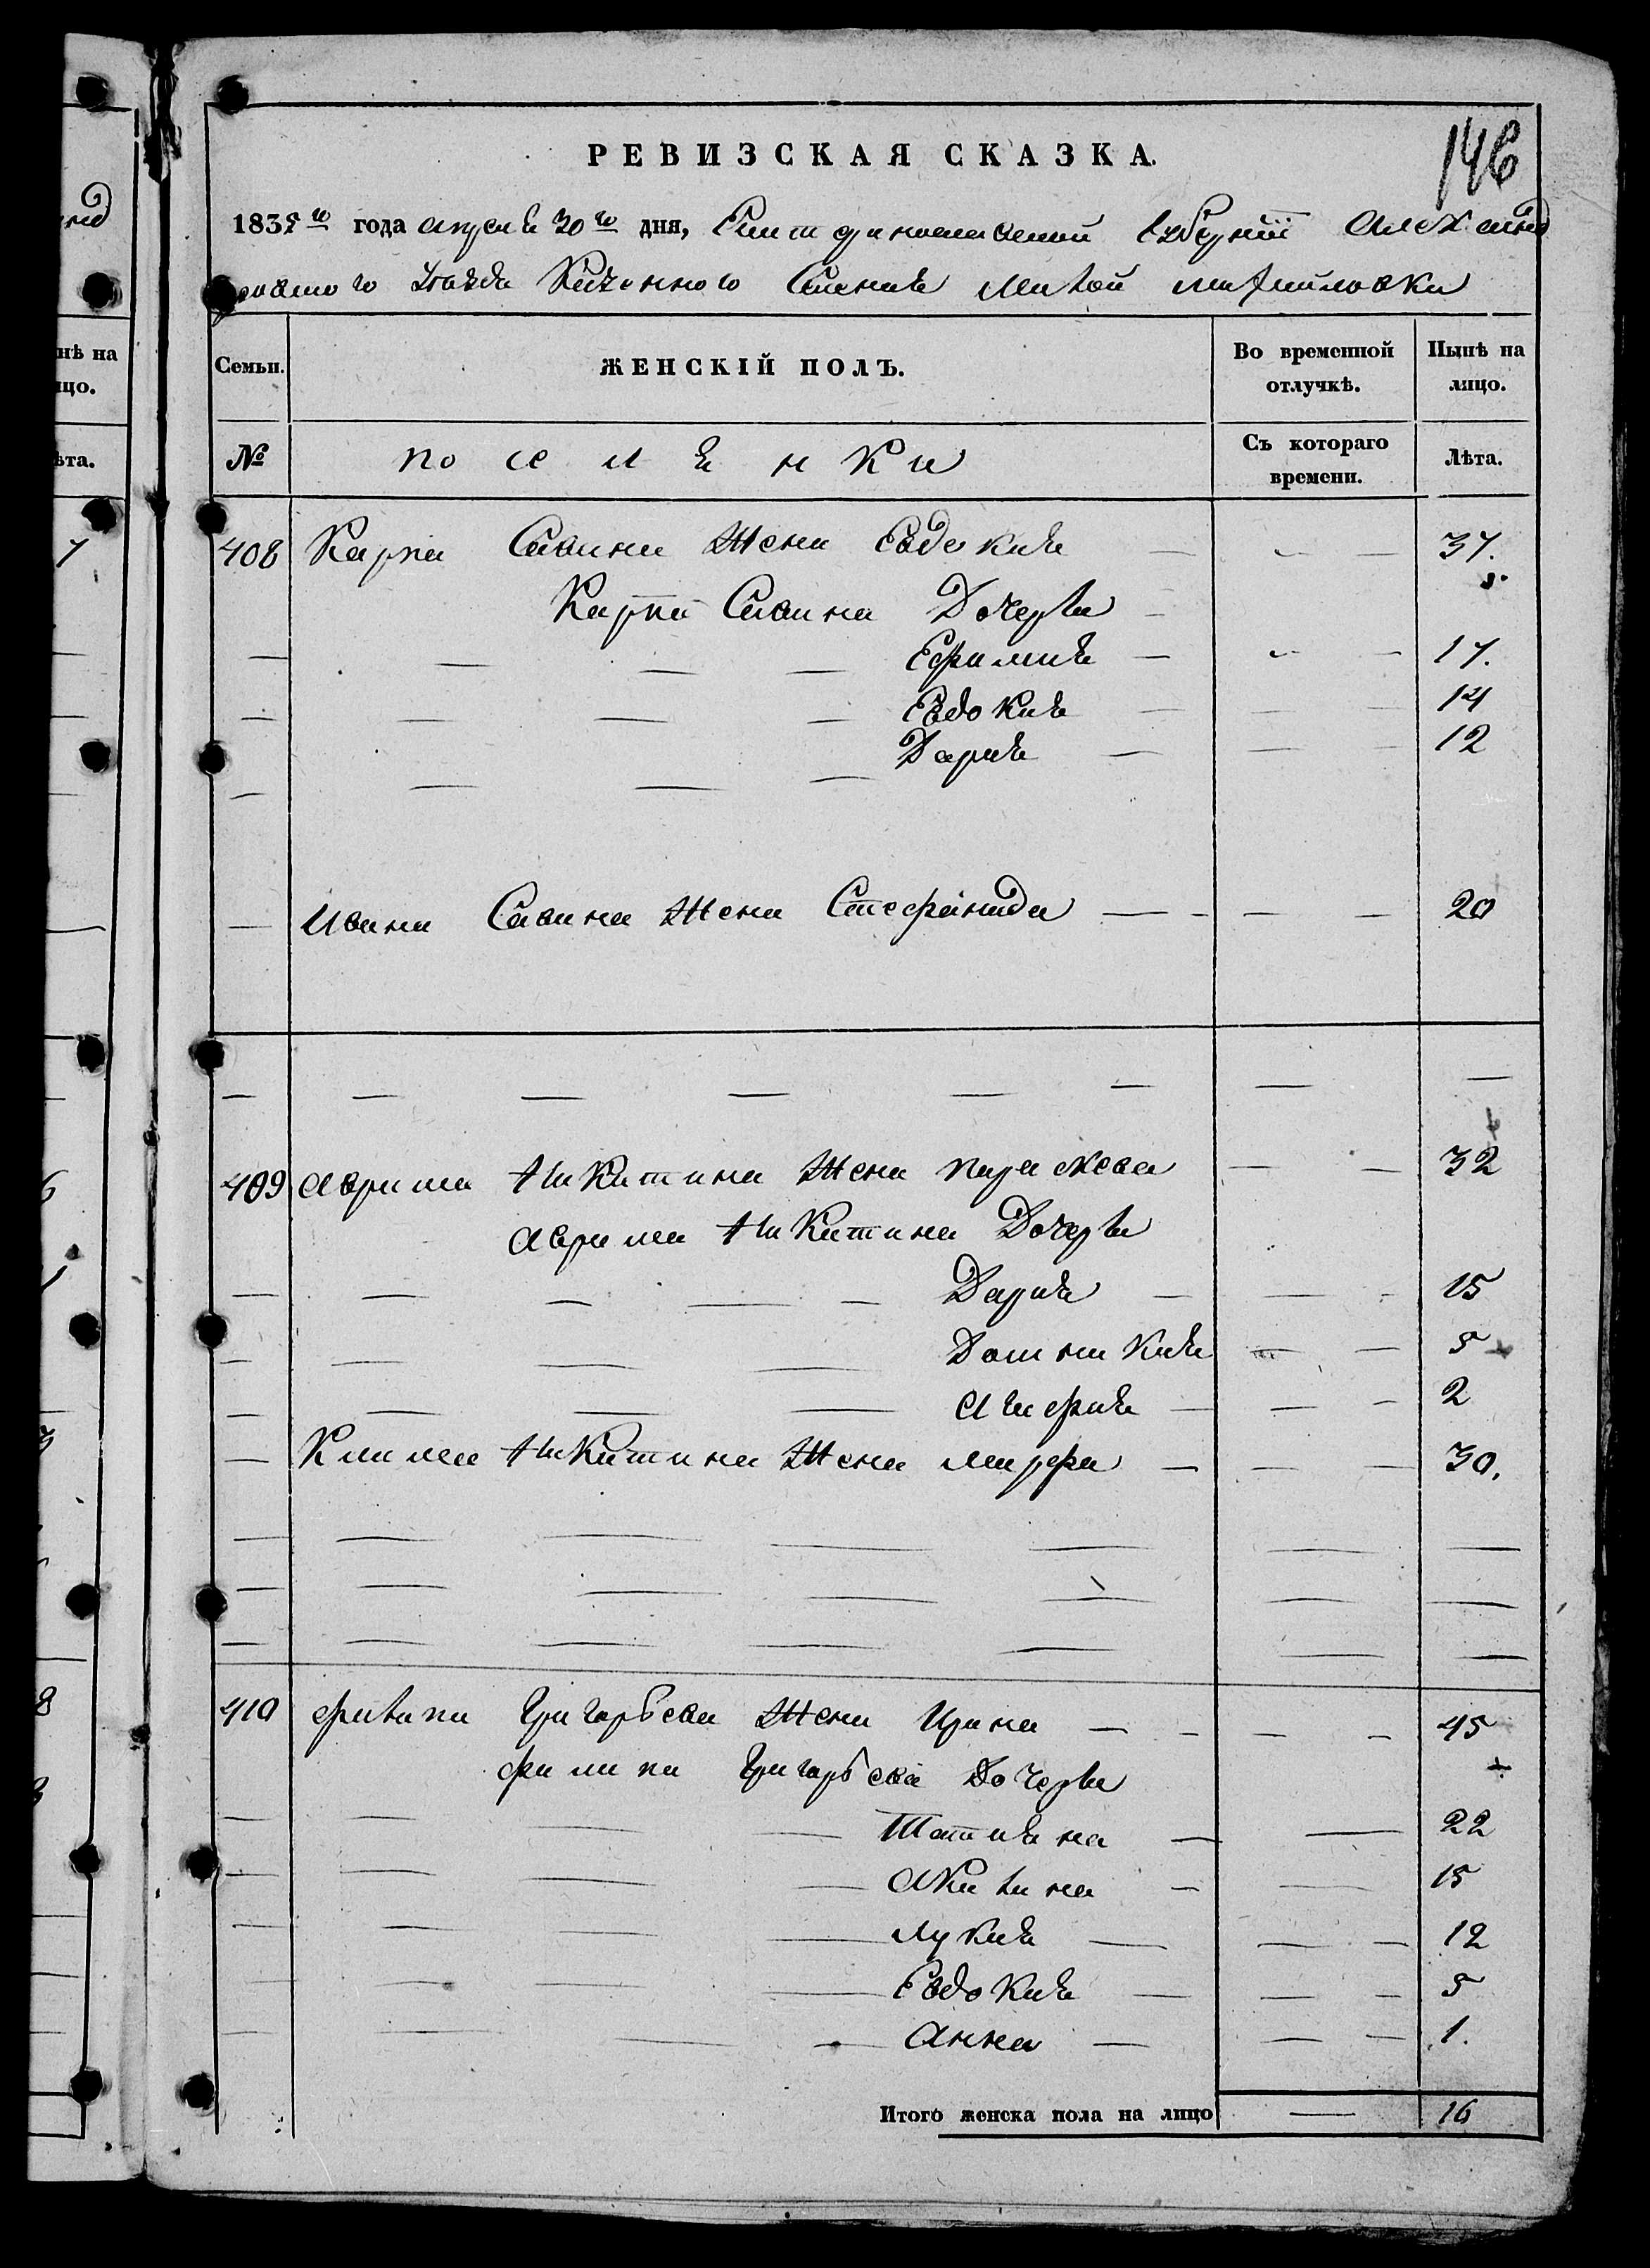 146
РЕВИЗСКАЯ СКАЗКА.
1835 го года апреля 30 го дня, Екатеринославской губернии Александ
ровского уезда Казенного Селения Малой михайловки
Семьи.
ЖЕНСКІЙ ПОЛЪ.
Во временной отлучкѣ.
Нынѣ на лицо.
№
поселянки
Съ котораго времени.
Лѣта.
408 Карпа Савина Жена Евдокия — — — 37.
Карпа Савина Дочери —
— — — — Ефимия — — — 17.
— — — — Евдокия — — — 14
— — — — Дария — — — 12
— Ивана Савина Жена Стефанида — — — — 20
— — — — — — — —
409 Аврама Никитина Жена параскева — — 32
Аврама Никитина Дочери
— — — — — Дария — — — 15
— — — — Домникия — — 5
— — — — Агафия — — — 2
— Клима Никитина Жена марфа — — — 30.
— — — — — — —
— — — — — — —
— — — — — — —
410 филипа Григорьева Жена Ирина — — — — 45
филипа Григорьева Дочери
— — — — Татияна — — 22
— — — — Акилина — — 15
— — — — Лукия — — — 12
— — — — Евдокия — — — 5
— — — — Анна — — — 1.
Итого женска пола на лицо — 16
нѣ на
ицо.
ѣта.